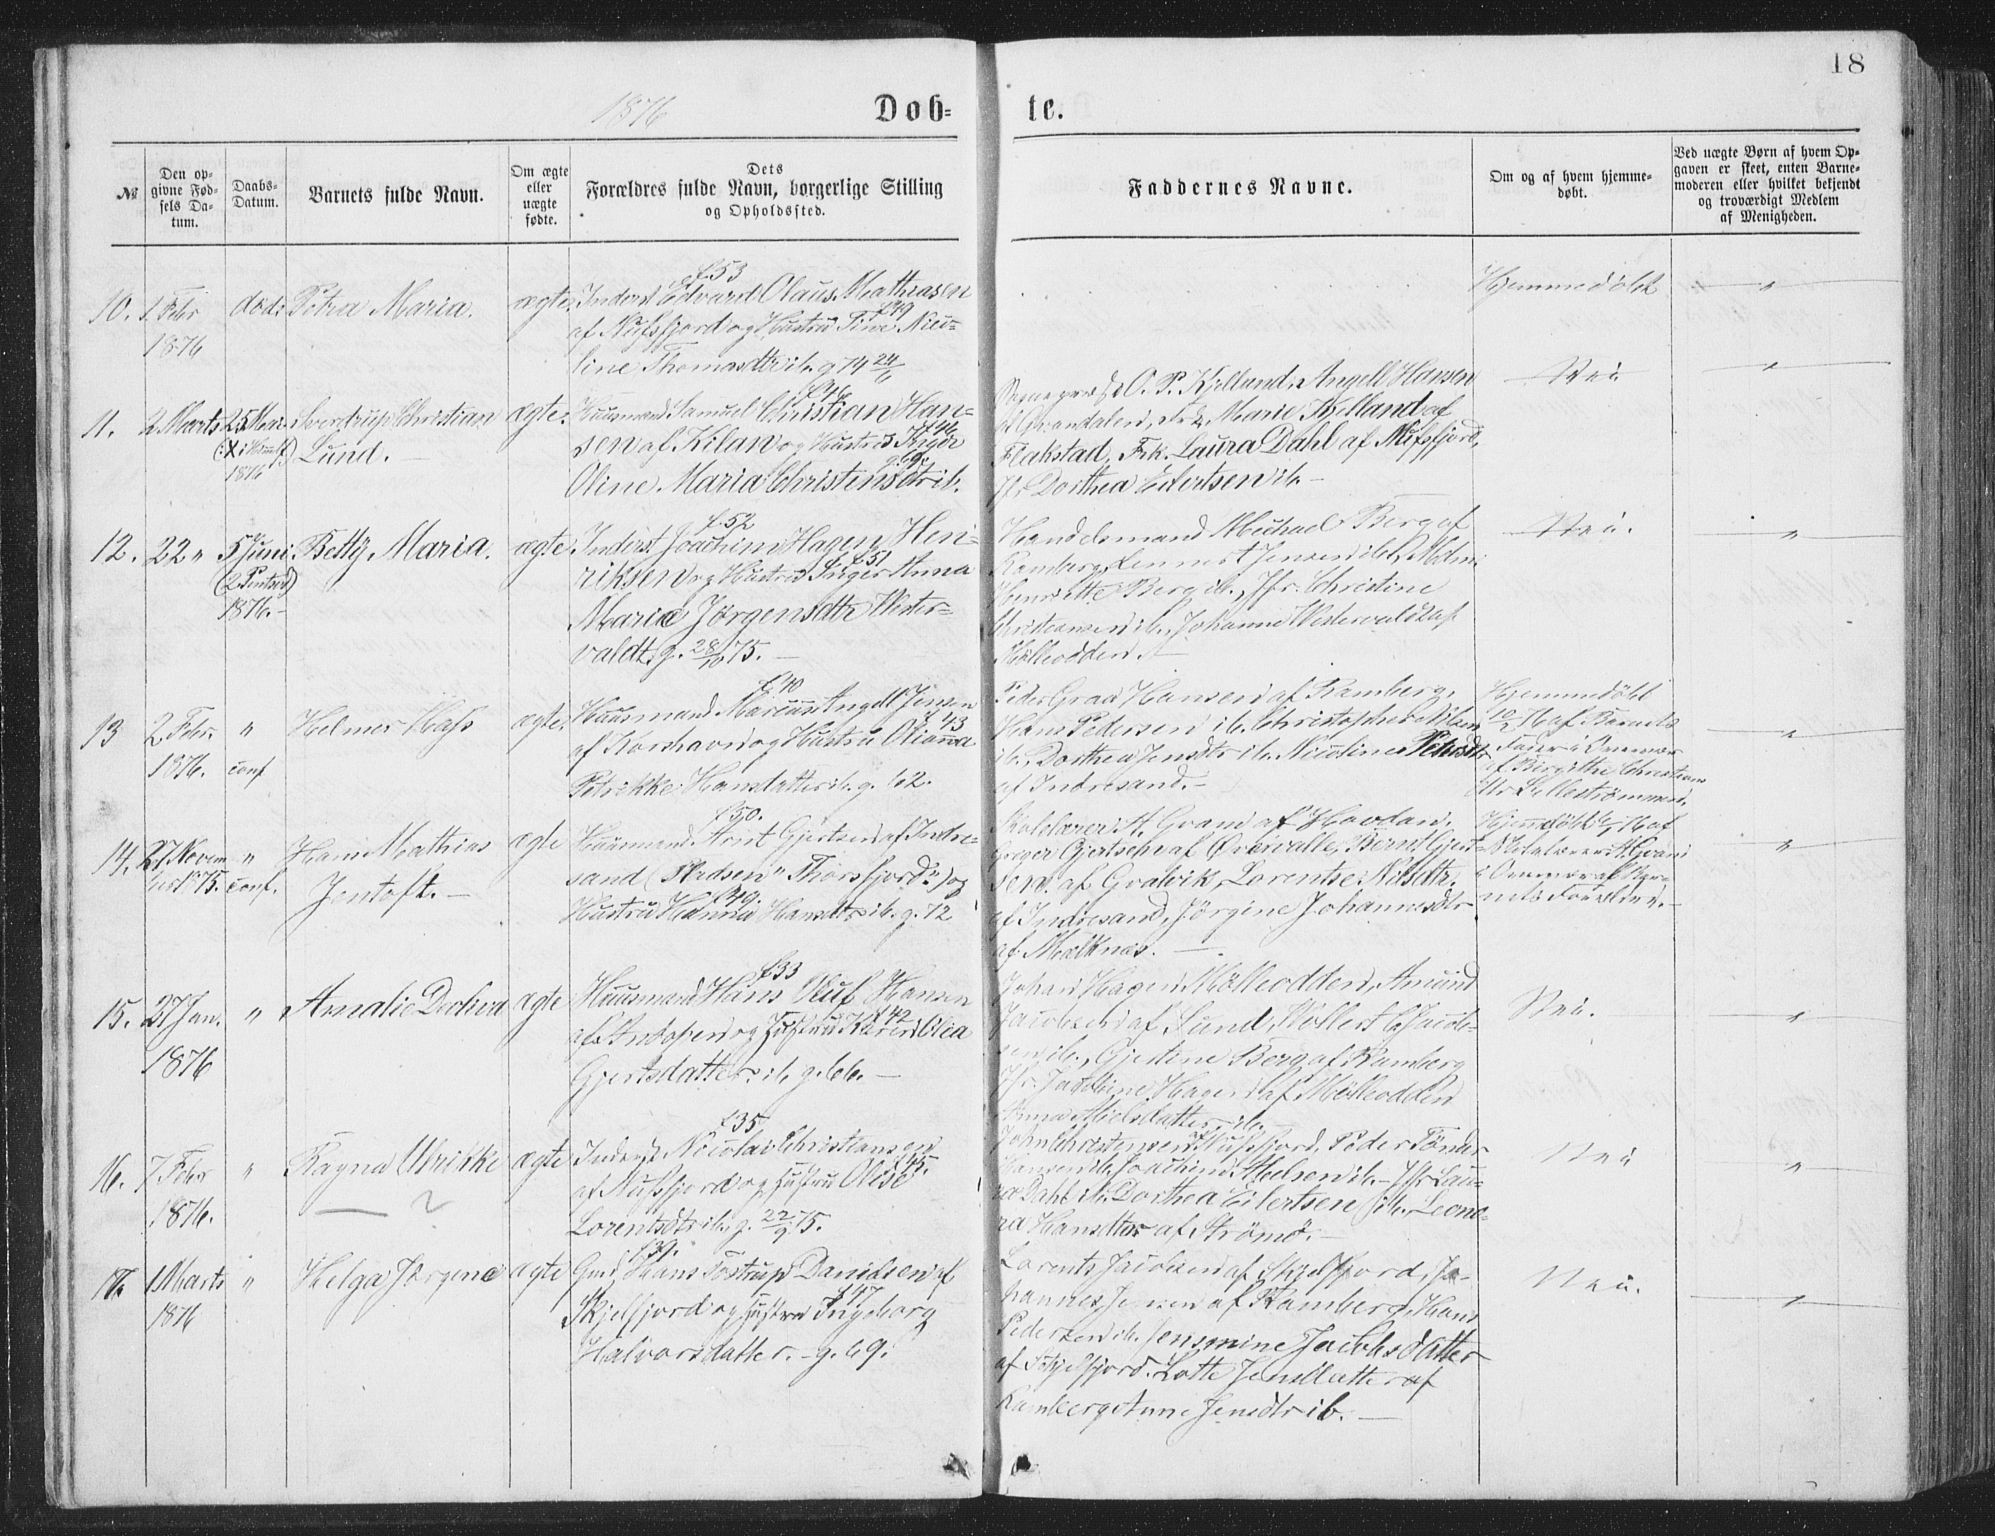 18
1876
Døb-
te.
№
Den op-
givne Fød-
sels Da-
tum.
Daabs-
Datum.
Barnets fulde Navn.
Om ægte
eller
uægte
fødte.
Dets
Forældres fulde Navn, borgerlige Stilling
og Opholdssted.
Faddernes Navne.
Om og af hvem hjemme-
døbt.
Ved uægte Børn af hvem Op-
gaven er skeet, enten Barne-
moderen eller hvilket bekjendt
og troværdigt Medlem
af Menigheden.
10. 1 Febr
1876
død:
Petra Maria.
ægte:
f. 53
Inderst Edvard Olaus Mathiasen
f. 49
af Nufsfjord og Hustru Tine Nico-
line Thomasdtr ib. g 74 24/6
Hjemmedöbt
"
11. 2 Marts
25 Mai
1876
Sverdrup Christian
Lund. -
ægte:
Huusmand Samuel Christian Han-
f. 46
sen af Kilan og Hustru Inger
g. 69.
Oline Maria Christensdtr ib.
O. P. Kjelland, Angell Hansen
Marie Kjelland af
Flakstad, Frk. Laura Dahl af Nufsfjord,
Jfr Dorthea Eilertsen ib. -
Nei
"
12. 22 "
5 Juni
(2 Pintsed)
1876. -
Betty Maria.
ægte:
f. 52
Inderst Joachim Hagen Hen-
f. 51
riksen og Hustru Inger Anna
Maria Jörgensdtr Wester-
valdt. g. 28/10 75. -
Handelsmand Michael Berg af
Ramberg, Jensen ib., Mdm:
Henriette Berg ib., Jfr. Christine
Christensen ib., Johanne Westervaldt af
Mölleodden. -
Nei.
"
13 2 Febr
1876.
"
conf
Helmer Hass
ægte:
f. 40
Huusmand Marcus Angell Jensen
f. 43
af Korshavn og Hustru Olianna
Petrikke Hansdatter ib. g. 62.
Peder Graa Hansen af Ramberg,
Hans Pedersen ib. Christopher Nilsen
ib., Dorthea Jensdtr ib. Nicoline Petersdtr
af Indresand. -
Hjemmedöbt
10/2 76 af Barnets
Fader i Overvær
af Birgithe Christians
dtr Lillestrømmen.
"
14. 27 Novem
ber 1875.
"
conf.
Hans Mathias
Jentoft. -
ægte
f. 50.
Huusmand Arnt Gjertsen af Indre-
sand (Stedsen "Thorsfjord") og
f. 49.
Hustru Hanna Hansdtr ib. g. 72
Skolelærer A. Gvani af Hovdan,
Greger Gjertsen af Ørsvalle, Bernt Gjert-
sen af Gralvik, Lorentse Nilsdtr.
af Indresand, Jörgine Johannesdtr
af Mælknæs. -
Hjemdöbt 76 af
Skolelærer A. Gvani
i Overvær af Bar-
nets Forældre. -
"
15. 27 Jan.
1876
"
Amalie Dorthea
ægte
f. 33
Huusmand Hans Oluf Hansen
f. 42
og Hustru Karen Olea
Gjertsdatter ib. g. 66. -
Johan Hagen Mölleodden, Amund
Jacobsen af Sund, Jacob-
sen ib., Gjertine Berg af Ramberg
Jfr. Jacobine Hagen af Mölleodden
Anna Nielsdatter ib.
Nei.
"
16. 7 Febr
1876.
"
Ragna Ulrikke
ægte
f. 35
Inderst Nicolai Christiansen
f. 45.
af Nufsfjord og Hustru Olise
Lorentsdtr ib. g. 22/9 75.
John Christensen af Nufsfjord, Peder Tönder
Hansen ib. Joachim Nielsen ib. - Jfr Lau-
ra Dahl ib. Dorthea Eilertsen ib. Leono-
ra Hansdtter af Strömö. -
Nei
"
17. 1 Marts
1876
"
Helga Jørgine
ægte
f. 39.
Gmd. Hans Tostrup Danielsen af
f. 47
Skjelfjord og Hustru Ingeborg
Halvorsdatter. - g. 69.
Lorents Jacobsen af Skjelfjord, Jo-
hannes Jensen af Ramberg, Hans
Pedersen ib. Jensmine Jacobsdatter
af Skjelfjord. Lotte Jensdatter af
Ramberg, Anne Jensdtr ib. -
Nei.
"